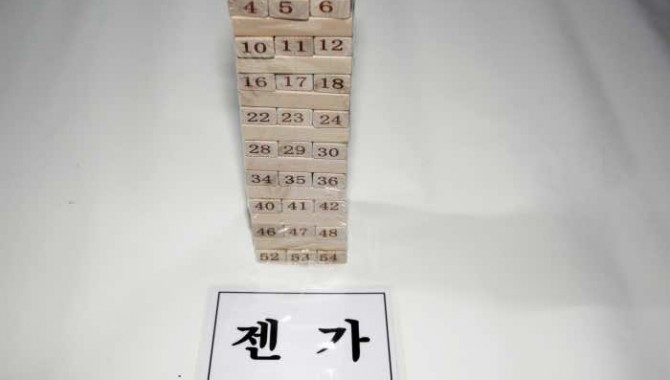 4 5 6
10 11 12
16 17 18
22 23 24
28 29 30
34 35 36
40 41 42
46 47 48
52 53 54
젠 가